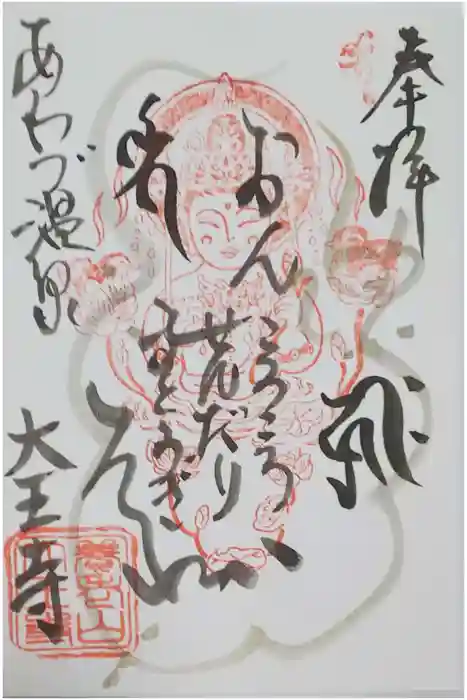 奉拝
おん
ころころ
せんだり
まとうぎ
そわか
あわづ温泉
大王寺